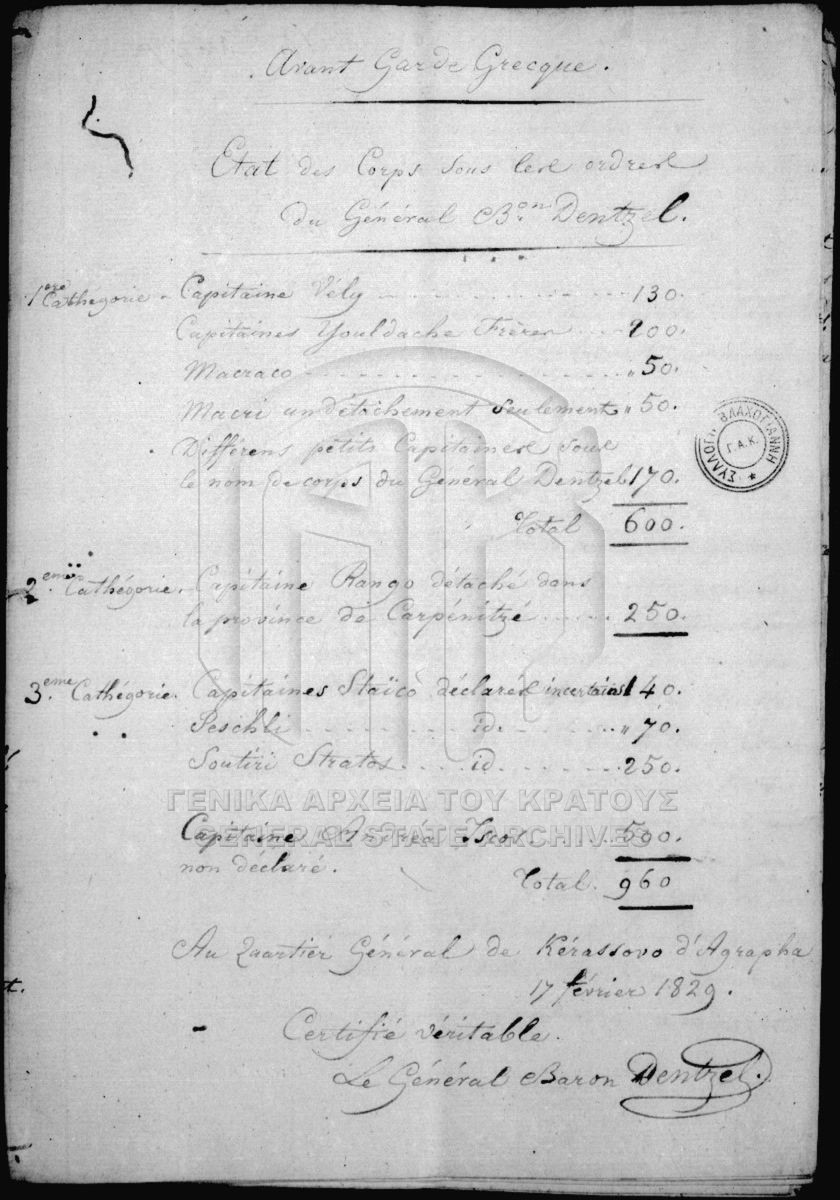 Avant Garde Grecque.
Etat des Corps sous les ordres
du Général Bon. Dentzel.
1ere Cathégorie - Capitaine Vély 130.
Capitaines Youldache Frères 200.
Macraco " 50.
Macri un détachement seulement " 50.
Différens petits Capitaines sous
le nom de corps du Général Dentzel 170.
Total 600.
2eme. Cathégorie. Capitaine Rango détaché dans
la province de Carpénitzé 250.
3eme. Cathégorie. Capitaines Staïco déclarés incertains 140.
Peschli id. " 70.
Soutiri Stratos id 250.
Capitaine Andréa 500.
non déclaré.
Total. 960
Au Quartier Général de Kérassovo d'Agrapha
17 février 1829.
Certifié véritable.
Le Général Baron Dentzel.
ΣΥΛΛΟΓΗ ΒΛΑΧΟΓΙΑΝΝΗ
Γ.Α.Κ.
ΓΕΝΙΚΑ ΑΡΧΕΙΑ ΤΟΥ ΚΡΑΤΟΥΣ
GENERAL STATE ARCHIVES